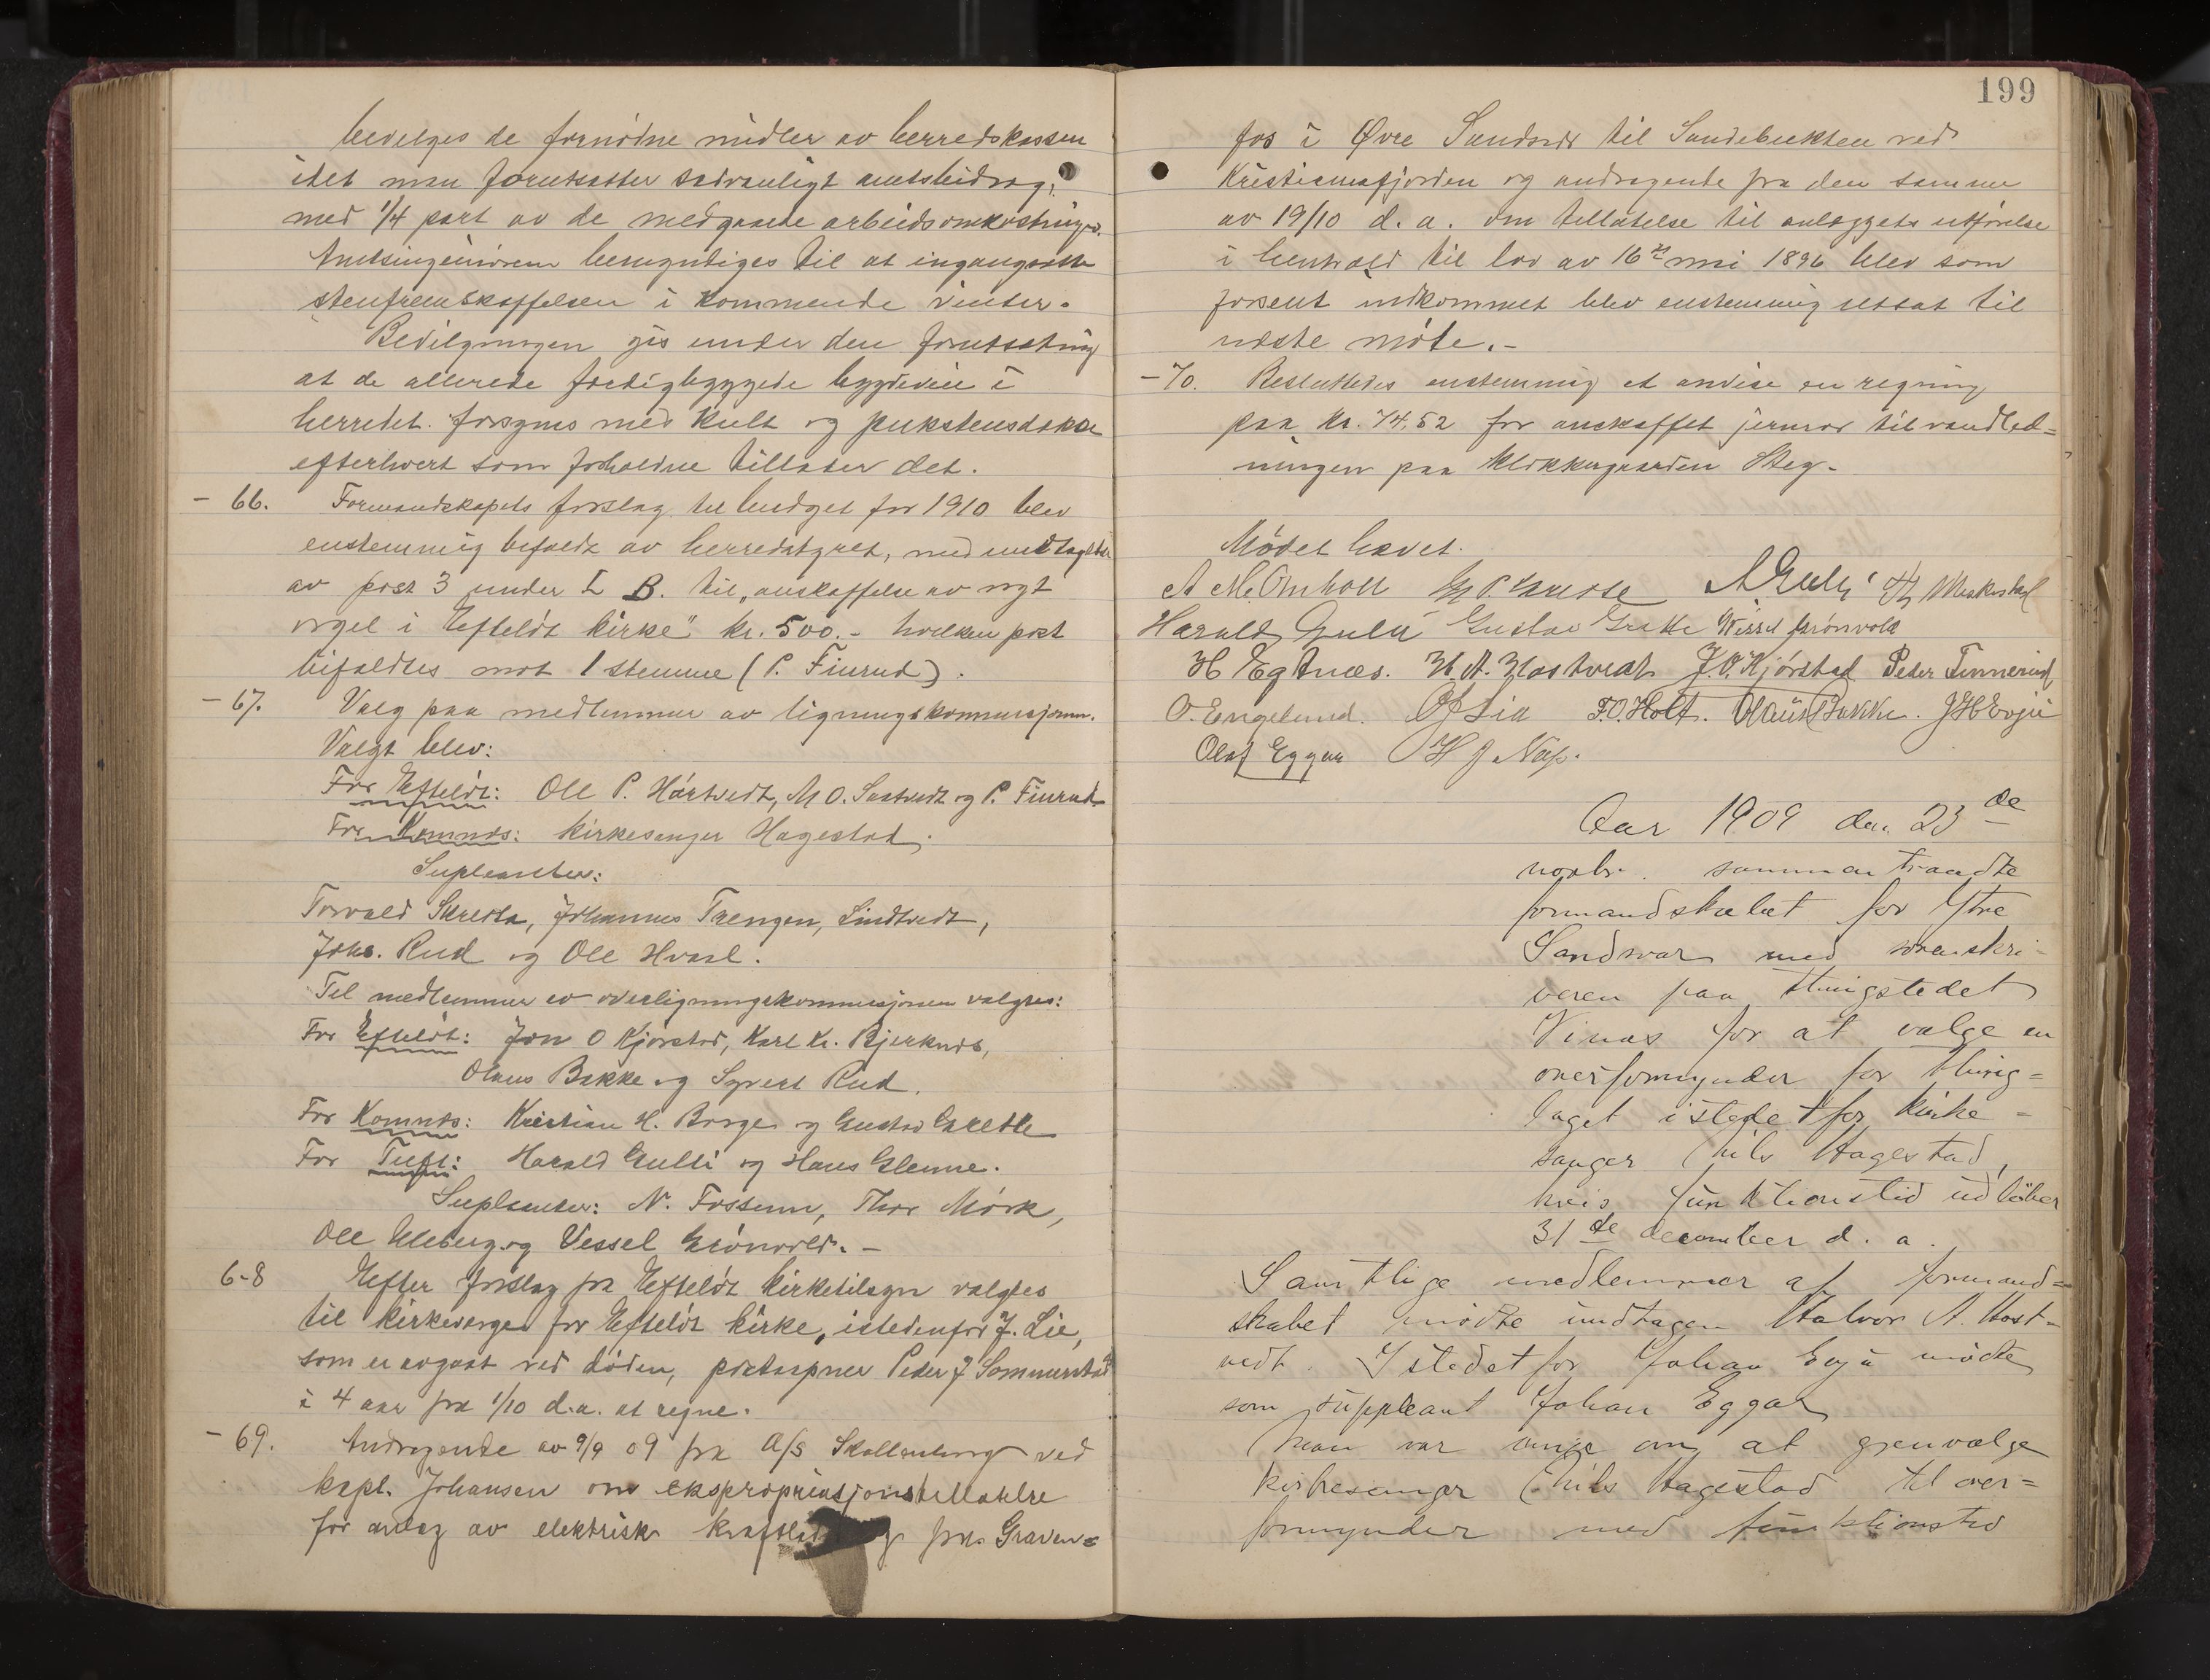 bevilges de fornødne midler av herredskassen
idet man forutsætter sedvanligt amtsbidrag,
med 1/4 part av de medgaaede arbeidsomkostninger.
Amtsingeniøren bemyndiges til at ingangsætte
stenfremskaffelsen i kommende vinter.
Bevilgningen gis under den forutsætning
at de allerede færdigbyggede bygdeveie i
herredet forsynes med kult og pukstensdække
efterhvert som forholdene tillater det.
- 66. Formandskapets forslag til budget for 1910 blev
enstemmig bifaldt av herredstyret, med undtagelse
av post 3 under I B. til "anskaffelse av nyt
orgel i Efteløt kirke" kr. 500.- hvilken post
bifaldtes mot 1 stemme (P. Finrud).
- 67. Valg paa medlemmer av ligningskommissjonen.
Valgt blev:
For Efteløt: Ole P. Hørtvedt, M O. Sastvedt og P. Finrud
For Komnes: Kirkesanger Hagestad.
Supleanter:
Torvald Skretta, Johannes Trengen, Lindtvedt,
Johs. Rud og Ole Hvaal.
Til medlemmer av overligningskommissjonen valgtes:
For Efteløt: Jon O Kjørstad, Karl Kr. Bjerknes,
Olaus Bakke og Syvert Rud.
For Komnes: Kristian H. Borge og Gustav Grette
For Tuft: Harald Gulli og Hans Glenne.
Supleanter: N. Fossum, Thor Mørk,
Ole Ueberg og Vessel Grønvold. -
6-8 Efter forslag fra Efteløt kirketilsyn valgtes
til kirkeverge for Efteløt kirke, istedenfor J. Lie,
som er avgaat ved døden, postaapner Peder J Sommerstad
i 4 aar fra 1/10 d.a. at regne.
- 69. Andragende av 9/9 09 fra A/S Skollenborg ved
kapt. Johansen om ekspropriasjonstillatelse
for anlæg av elektrisk fra Graven=
199
fos i Øvre Sandsvær til Sandebukten ved
Kristianiafjorden og andragende fra den samme
av 19/10 d. a. om tillatelse til anlæggets utførelse
i henhold til lov av 16de mai 1896 blev som
forsent indkommet blev enstemmig utsat til
næste møte. -
- 70. Besluttedes enstemmig at anvise en regning
paa kr. 74,52 for anskaffet jernrør til vandled=
ningen paa klokkergaarden Steg.
Mødet hævet.
A M. Omholt A Gulli
Harald Gulli Gustav Grette Wessel Grønvold
H Egtnæs. H. A. Hostvedt J. O. Kjørstad Peder Finnerud
O. Engelund. O J Lia F.O. Holt. Olaus Bakke. J H Evju
Olaf Eggar H J Næss.
Aar 1909 den 23de
novbr. sammentraadte
formandskabet for Ytre
Sandsvær med sorenskri-
veren paa thingstedet
Vinæs for at vælge en
overformynder for thing=
laget istedetfor kirke=
sanger Nils Hagestad,
hvis funktionstid udløber
31de december d. a.
Samtlige medlemmer af formand=
skabet mødte undtagen Halvor A. Host=
vedt. Istedetfor Johan Evju mødte
som suppleant Johan Eggar
Man var enige om at gjenvælge
kirkesanger Nils Hagestad til over=
formynder med funktionstid